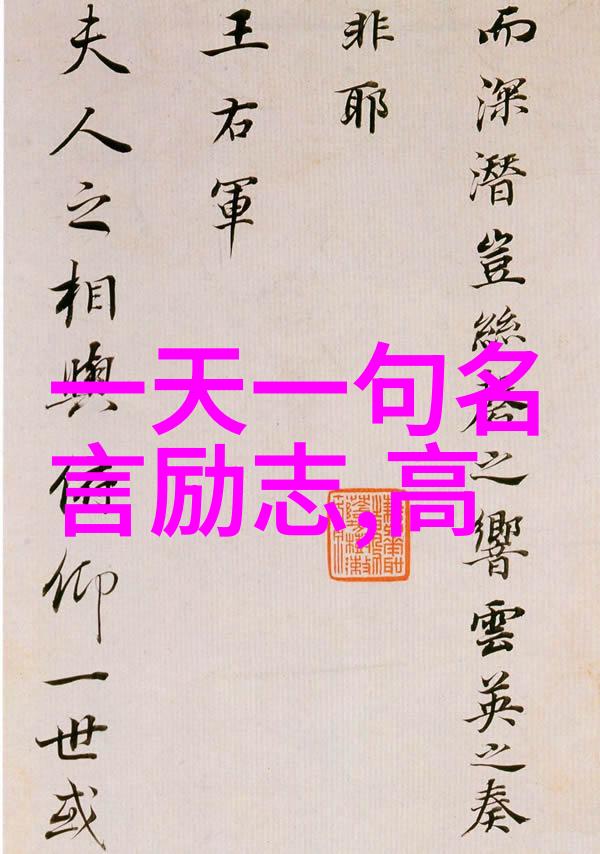 而深潛豈絲之響雲英之奏
非耶
王右軍
夫人之相與俯仰一世或
一天一句名
言励志,高